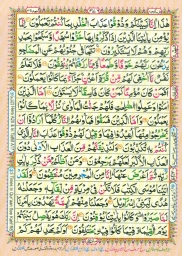 هٰذَا اِنَّا نَسِيْنٰكُمْ وَذُوْقُوْا عَذَابَ الْخُلْدِ بِمَا كُنْتُمْ تَعْمَلُوْنَ اِنَّمَا
يُؤْمِنُ بِاٰيٰتِنَا الَّذِيْنَ اِذَا ذُكِّرُوْا بِهَا خَرُّوْا سُجَّدًا وَّسَبَّحُوْا بِحَمْدِ
رَبِّهِمْ وَهُمْ لَا يَسْتَكْبِرُوْنَ تَتَجَافٰى جُنُوْبُهُمْ عَنِ الْمَضَاجِعِ
يَدْعُوْنَ رَبَّهُمْ خَوْفًا وَّطَمَعًا وَّمِمَّا رَزَقْنٰهُمْ يُنْفِقُوْنَ فَلَا تَعْلَمُ
نَفْسٌ مَّآ اُخْفِيَ لَهُمْ مِّنْ قُرَّةِ اَعْيُنٍ جَزَآءً بِمَا كَانُوْا يَعْمَلُوْنَ
اَفَمَنْ كَانَ مُؤْمِنًا كَمَنْ كَانَ فَاسِقًا لَا يَسْتَوٗنَ اَمَّا الَّذِيْنَ اٰمَنُوْا
وَعَمِلُوا الصّٰلِحٰتِ فَلَهُمْ جَنّٰتُ الْمَاْوٰى نُزُلًا بِمَا كَانُوْا
يَعْمَلُوْنَ وَاَمَّا الَّذِيْنَ فَسَقُوْا فَمَاْوٰىهُمُ النَّارُ كُلَّمَآ اَرَادُوْٓا اَنْ
يَّخْرُجُوْا مِنْهَآ اُعِيْدُوْا فِيْهَا وَقِيْلَ لَهُمْ ذُوْقُوْا عَذَابَ النَّارِ الَّذِيْ
كُنْتُمْ بِهٖ تُكَذِّبُوْنَ وَلَنُذِيْقَنَّهُمْ مِّنَ الْعَذَابِ الْاَدْنٰى دُوْنَ
الْعَذَابِ الْاَكْبَرِ لَعَلَّهُمْ يَرْجِعُوْنَ وَمَنْ اَظْلَمُ مِمَّنْ ذُكِّرَ بِاٰيٰتِ
رَبِّهٖ ثُمَّ اَعْرَضَ عَنْهَا اِنَّا مِنَ الْمُجْرِمِيْنَ مُنْتَقِمُوْنَ وَلَقَدْ
اٰتَيْنَا مُوْسَى الْكِتٰبَ فَلَا تَكُنْ فِيْ مِرْيَةٍ مِّنْ لِّقَآئِهٖ وَجَعَلْنٰهُ
هُدًى لِّبَنِيْٓ اِسْرَآءِيْلَ وَجَعَلْنَا مِنْهُمْ اَئِمَّةً يَّهْدُوْنَ بِاَمْرِنَا
لَمَّا صَبَرُوْا وَكَانُوْا بِاٰيٰتِنَا يُوْقِنُوْنَ اِنَّ رَبَّكَ هُوَ يَفْصِلُ بَيْنَهُمْ
يَوْمَ الْقِيٰمَةِ فِيْمَا كَانُوْا فِيْهِ يَخْتَلِفُوْنَ اَوَلَمْ يَهْدِ لَهُمْ كَمْ